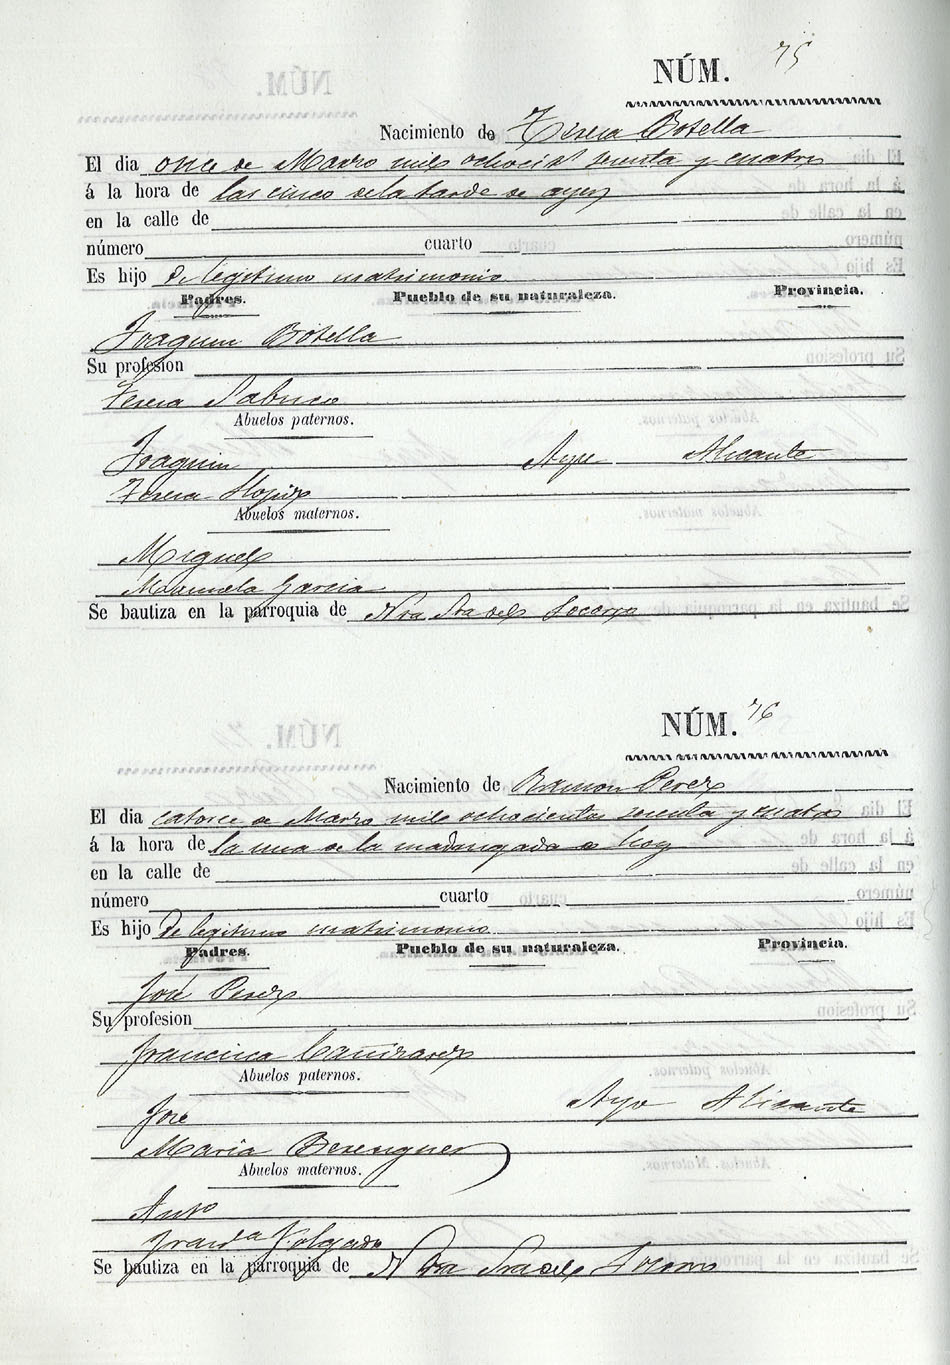 NÚM. 75
Nacimiento de Teresa Botella
El dia once de Marzo mil ochocist sesenta y cuatro
á la hora de las cinco de la tarde de ayer
en la calle de
número cuarto
Es hijo de legitimo matrimonio
Padres. Pueblo de su naturaleza. Provincia.
Joaquin Botella
Su profesion
Teresa
Abuelos paternos.
Joaquin Aspe Alicante
Teresa
Abuelos maternos.
Miguel
Manuela Garcia
Se bautiza en la parroquia de Ntra Sra del Socorro
NÚM. 76
Nacimiento de Ramon Perez
El dia catorce de Marzo mil ochocientos sesenta y cuatro
á la hora de la una de la madrugada de hoy
en la calle de
número cuarto
Es hijo de legitimo matrimonio
Padres. Pueblo de su naturaleza. Provincia.
José Perez
Su profesion
Francisca Cañizares
Abuelos paternos.
José Aspe Alicante
Maria Berenguer
Abuelos maternos.
Anto
Franca
Se bautiza en la parroquia de Ntra Sra del Socorro